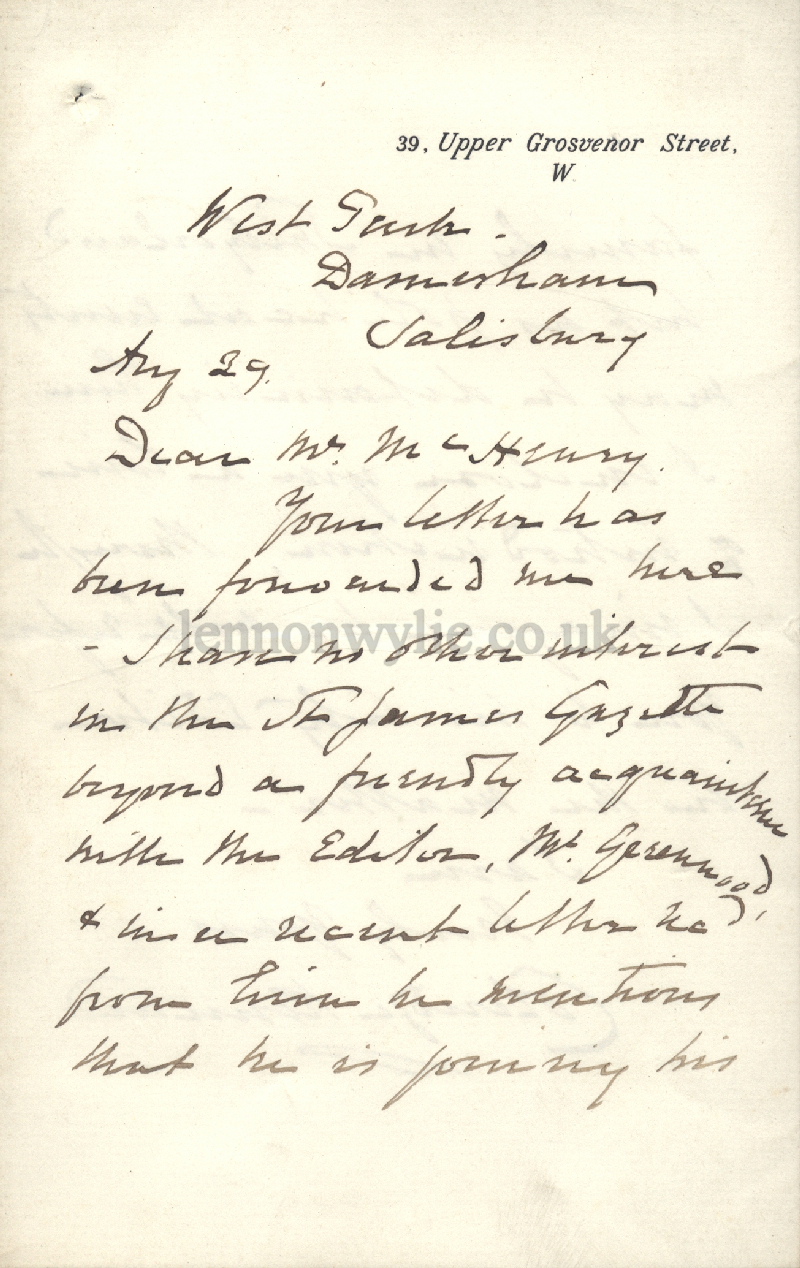 39, Upper Grosvenor Street,
W.
West Park.
Damerham
Salisbury
Aug 29.
Dear Mr. McHenry.
Your letter has
been forwarded me here
- I have no other interest
lennonwylie.co.uk
in the St James Gazette
beyond a friendly acquaintance
with the Editor, Mr. Greenwood,
& in a recent letter recd,
from him he mentions
that he is joining his